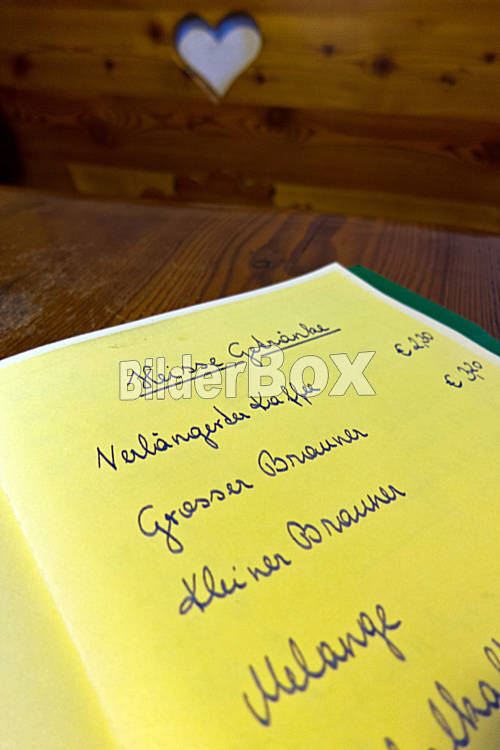 Heisse Getränke
BilderBOX
Verlängerter Kaffee € 2,30
Grosser Brauner € 3,20
Kleiner Brauner
Melange